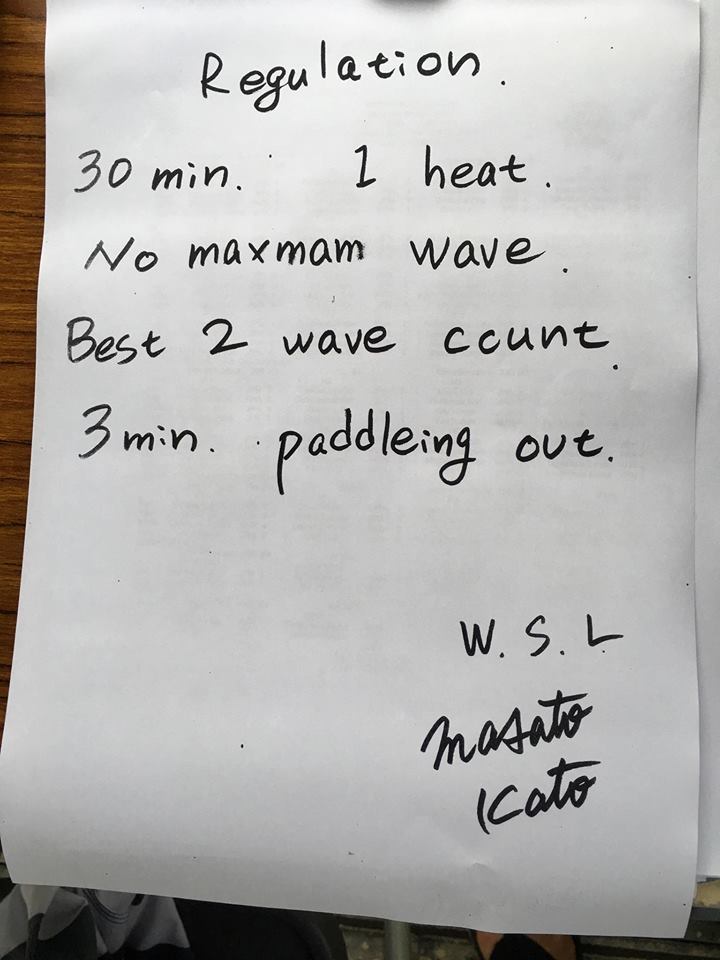 Regulation.
30 min. 1 heat.
No maxmam wave.
Best 2 wave ccunt.
3 min. paddleing out.
W. S. L
Masato
Kato